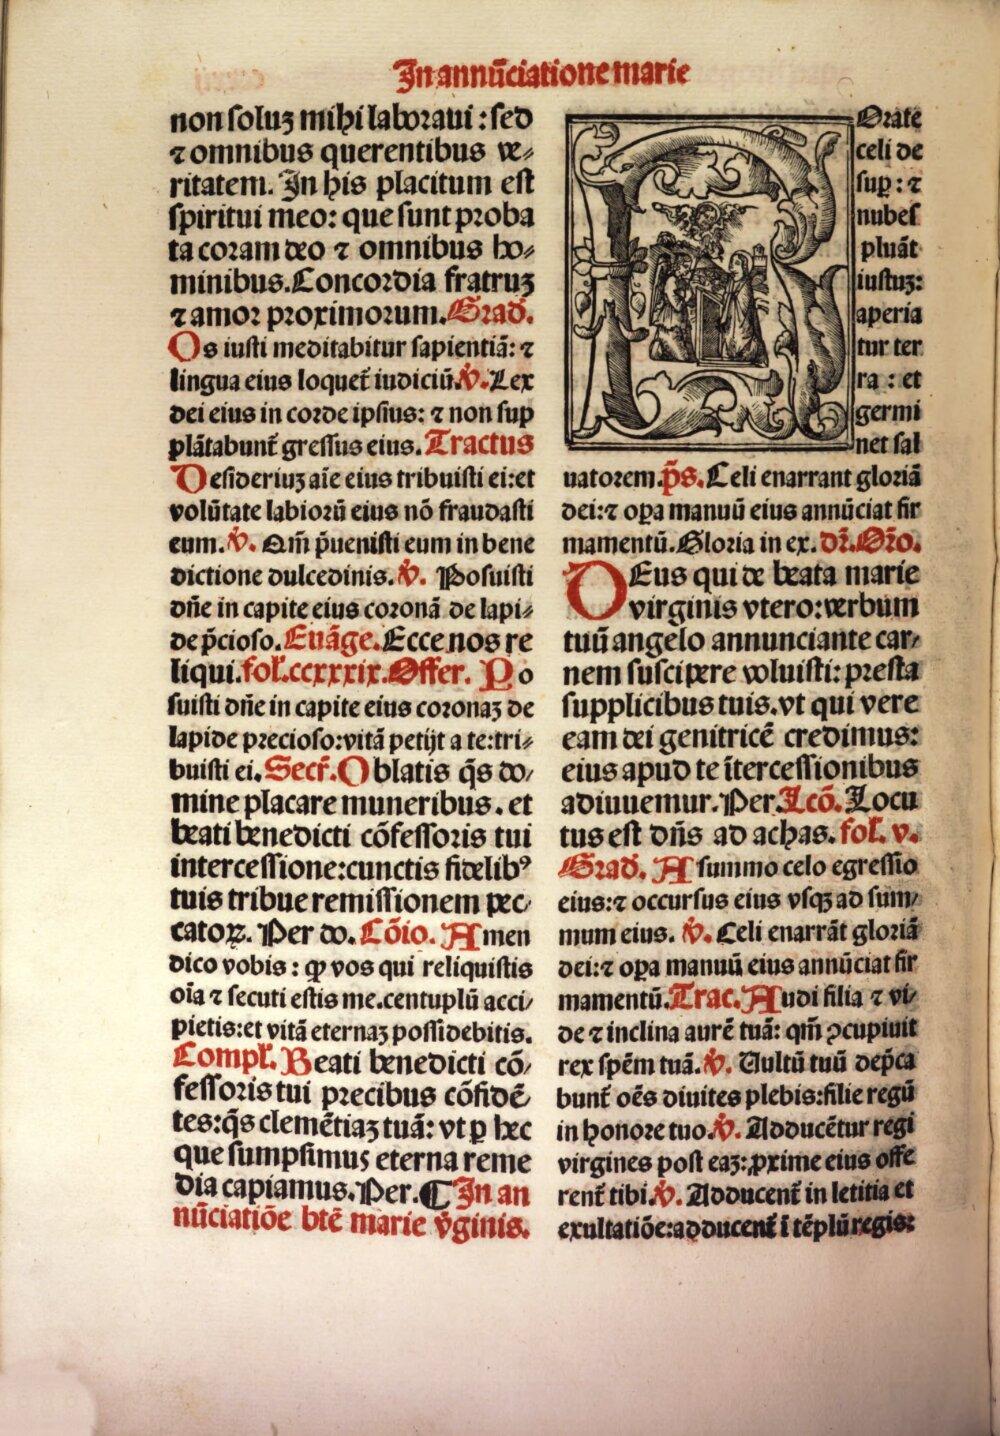 In annūciatione marie
non soluꝫ mihi laboraui : sed
⁊ omnibus querentibus ve⸗
ritatem. In his placitum est
spiritui meo: que sunt proba
ta coram deo ⁊ omnibus ho⸗
minibus. Concordia fratruꝫ
⁊ amor proximorum. Grad̄.
Os iusti meditabitur sapientiā: ⁊
lingua eius loquet̄ iudiciū. ℣. Lex
dei eius in corde ipsius: ⁊ non sup
plātabunt̄ gressus eius. Tractus
Desideriuꝫ aīe eius tribuisti ei: et
volūtate labiorū eius nō fraudasti
eum. ℣. Qm̄ p̄uenisti eum in bene
dictione dulcedinis. ℣. Posuisti
dn̄e in capite eius coronā de lapi⸗
de p̄cioso. Euāge. Ecce nos re
liqui. fol̄. ccxxxix. Offer. Po
suisti dn̄e in capite eius coronaꝫ de
lapide precioso: vitā petijt a te: tri⸗
buisti ei. Secr̄. Oblatis q̄s do/
mine placare muneribus . et
beati benedicti cōfessoris tui
intercessione: cunctis fidelibꝰ
tuis tribue remissionem pec⸗
catoꝝ. Per do. Cōio. Amen
dico vobis : ꝙ vos qui reliquistis
oīa ⁊ secuti estis me. centuplū acci/
pietis: et vitā eternaꝫ possidebitis.
Compl̄. Beati benedicti cō/
fessoris tui precibus cōfidē⸗
tes: q̄s clemētiaꝫ tuā: vt ꝑ hec
que sumpsimus eterna reme
dia capiamus. Per. ¶ In an
nūciatiōe btē marie v̄ginis.
Rorate
celi de
suꝑ : ⁊
nubes
pluāt
iustuꝫ:
aperia
tur ter
ra : et
germi
net sal
uatorem. p̄s. Celi enarrant gloriā
dei: ⁊ oꝑa manuū eius annūciat fir
mamentū. Gloria in ex. dr̄. Or̄o.
DEus qui de beata marie
virginis vtero: verbum
tuū angelo annunciante car/
nem suscipere voluisti: presta
supplicibus tuis. vt qui vere
eam dei genitricē credimus:
eius apud te ītercessionibus
adiuuemur. Per. Lcō. Locu
tus est dn̄s ad achas. fol̄. v.
Grad̄. A summo celo egressio
eius: ⁊ occursus eius vsqꝫ ad sum/
mum eius. ℣. Celi enarrāt gloriā
dei: ⁊ oꝑa manuū eius annūciat fir
mamentū. Trac. Audi filia ⁊ vi/
de ⁊ inclina aurē tuā: qm̄ ꝯcupiuit
rex spēm tuā. ℣. Uultū tuū dep̄ca
bunt̄ oēs diuites plebis: filie regū
in honore tuo. ℣. Adducētur regi
virgines post eaꝫ: ꝓxime eius offe
rent̄ tibi. ℣. Adducent̄ in letitia et
exultatiōe: adducent̄ ī tēplū regis: